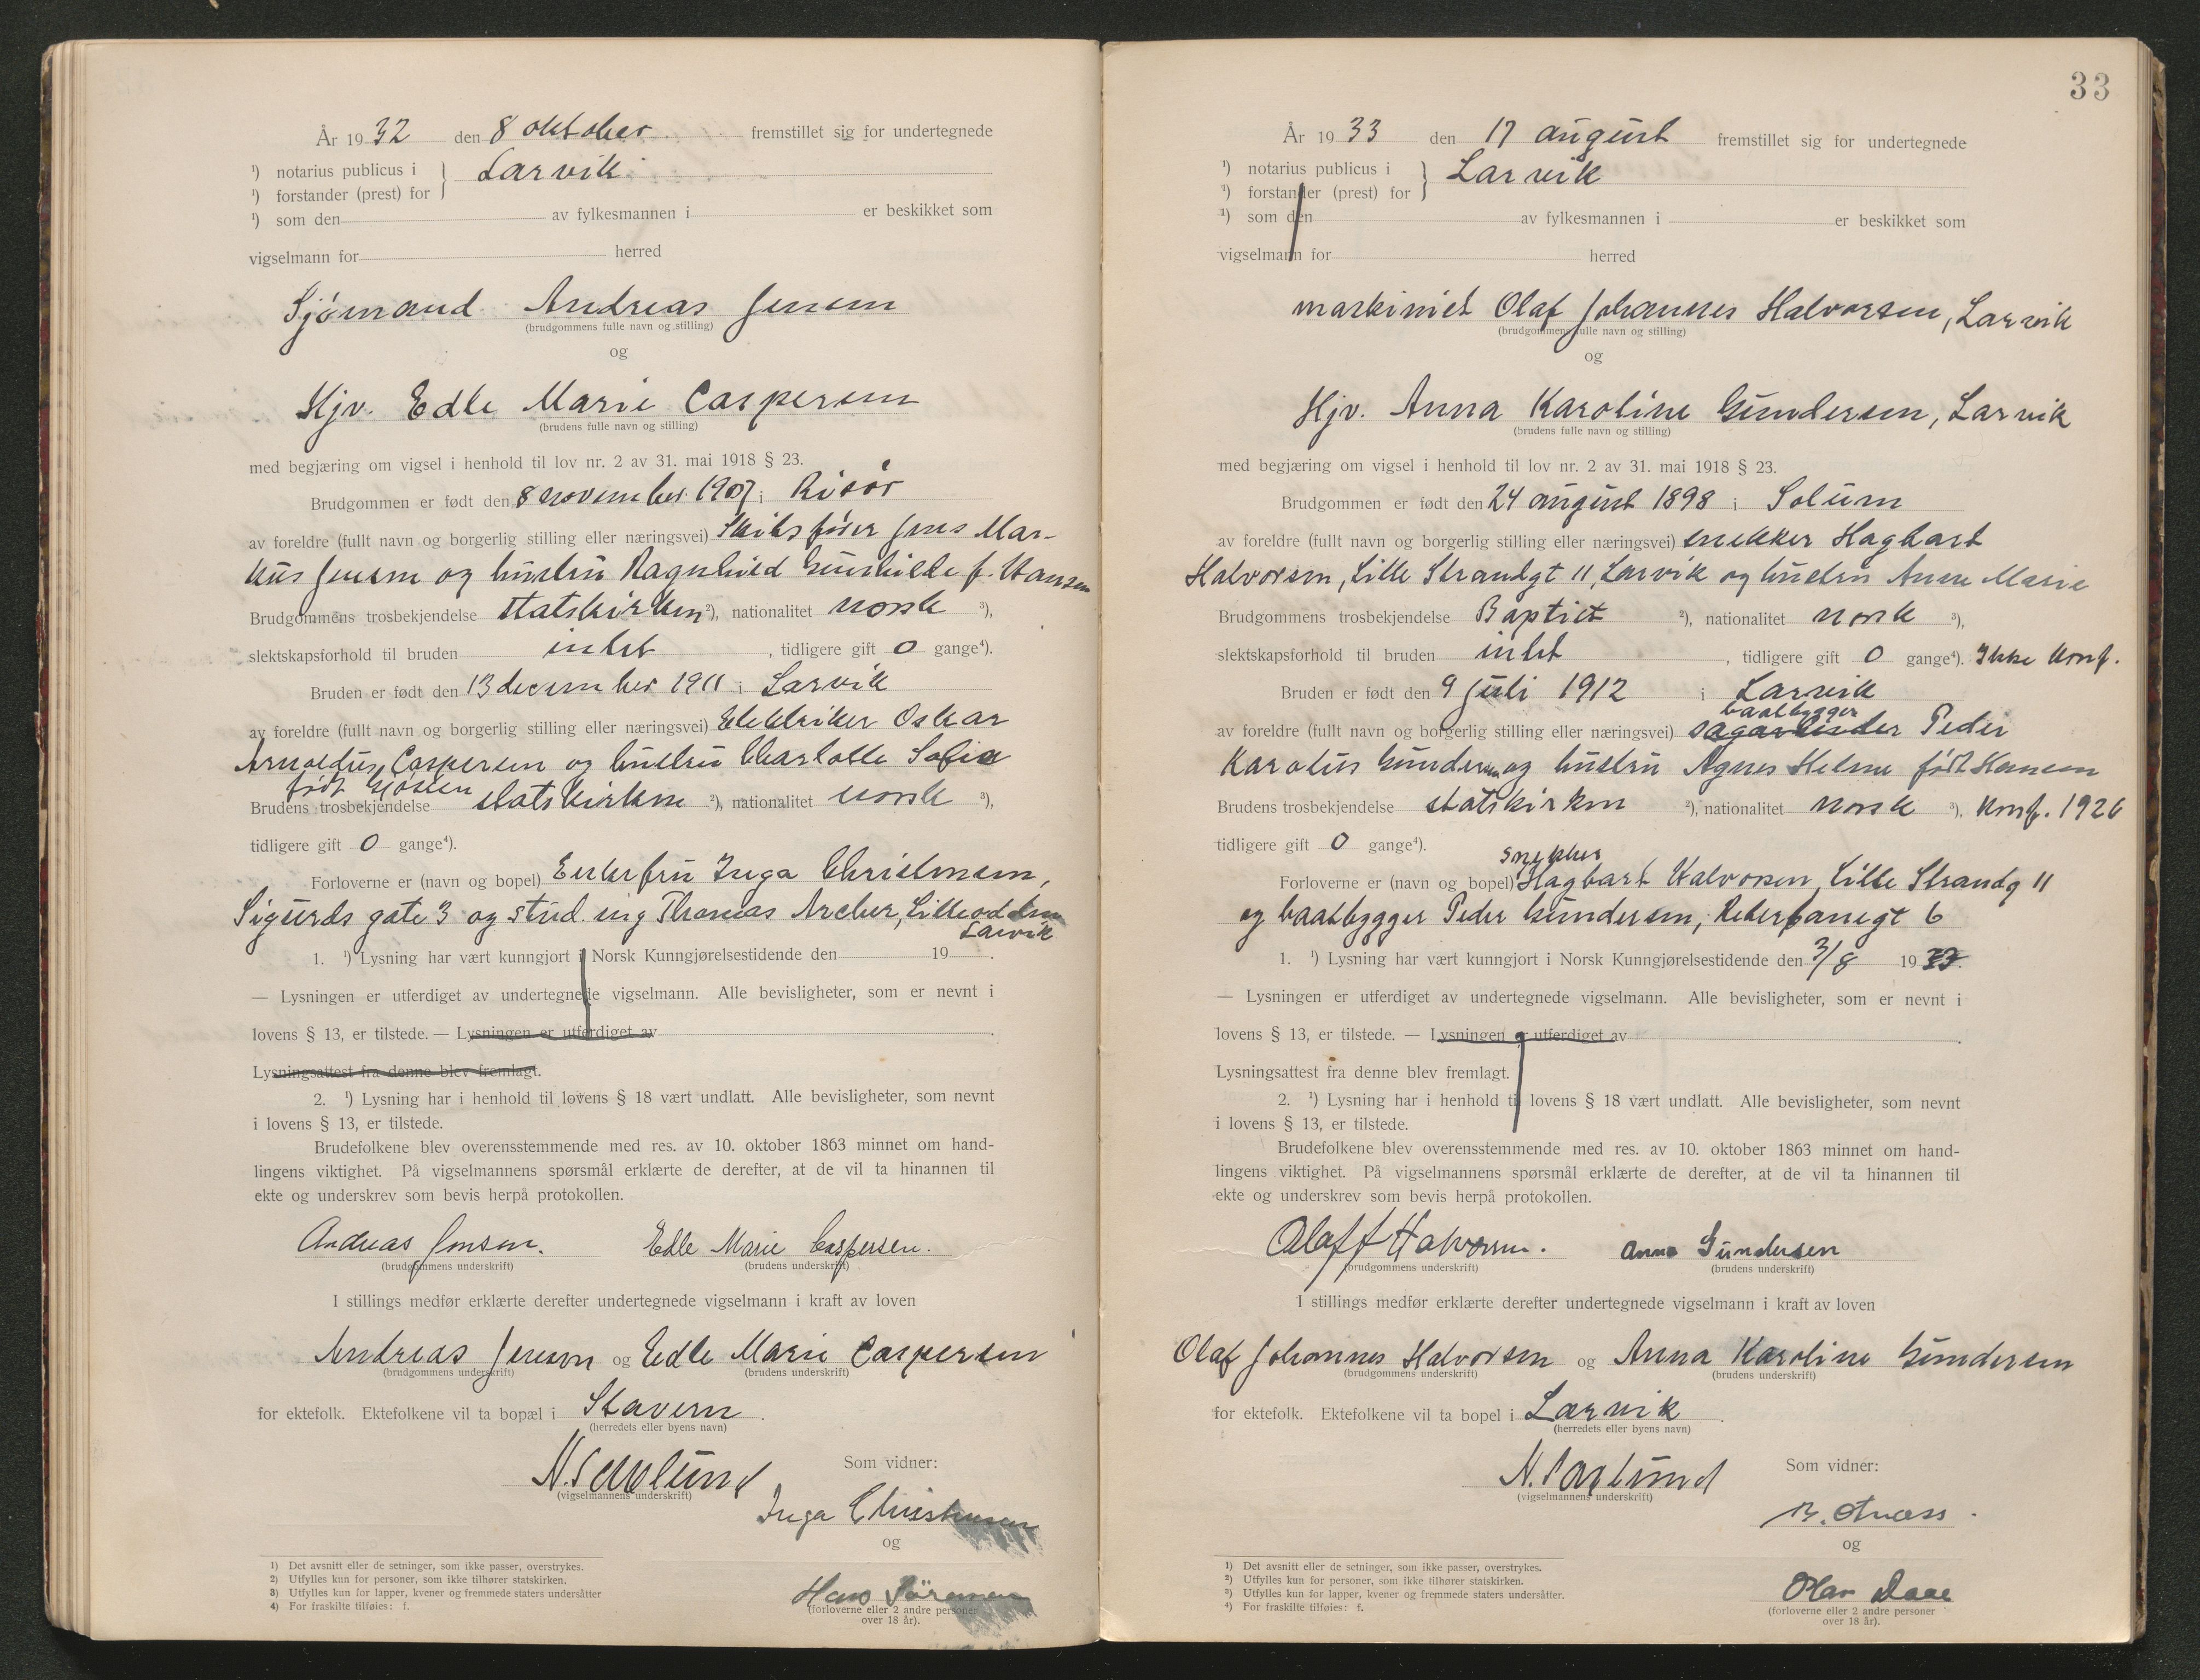 År 1932 den 8 oktober fremstillet sig for undertegnede
¹) notarius publicus i } Larvik
¹) forstander (prest) for
¹) som den av fylkesmannen i er beskikket som
vigselmann for herred
Sjømand Andreas Jensen
(brudgommens fulle navn og stilling)
og
Hjv. Edle Marie Caspersen
(brudens fulle navn og stilling)
med begjæring om vigsel i henhold til lov nr. 2 av 31. mai 1918 § 23.
Brudgommen er født den 8 november 1907 i Risör
av foreldre (fullt navn og borgerlig stilling eller næringsvei) Skibsfører Jens Mar-
kus Jensen og hustru Ragnhild Gunhilde f. Hansen
Brudgommens trosbekjendelse statskirken ²), nationalitet norsk ³),
slektskapsforhold til bruden intet , tidligere gift 0 gange⁴).
Bruden er født den 13 december 1911 i Larvik
av foreldre (fullt navn og borgerlig stilling eller næringsvei) Elektriker Oskar
Arnoldus Caspersen og hustru Charlotte Sofie
født
Brudens trosbekjendelse statskirken ²), nationalitet norsk ³),
tidligere gift 0 gange⁴).
Forloverne er (navn og bopel) Enkefru Inga Christensen,
Sigurds gate 3 og stud. ing Thomas Archer, Lilleodden
Larvik
1. ¹) Lysning har vært kunngjort i Norsk Kunngjørelsestidende den 19 .
— Lysningen er utferdiget av undertegnede vigselmann. Alle bevisligheter, som er nevnt i
lovens § 13, er tilstede. — Lysningen er utferdiget av .
Lysningsattest fra denne blev fremlagt.
2. ¹) Lysning har i henhold til lovens § 18 vært undlatt. Alle bevisligheter, som nevnt
i lovens § 13, er tilstede.
Brudefolkene blev overensstemmende med res. av 10. oktober 1863 minnet om hand-
lingens viktighet. På vigselmannens spørsmål erklærte de derefter, at de vil ta hinannen til
ekte og underskrev som bevis herpå protokollen.
Andreas Jensen. Edle Marie Caspersen.
(brudgommens underskrift) (brudens underskrift)
I stillings medfør erklærte derefter undertegnede vigselmann i kraft av loven
Andreas Jensen og Edle Marie Caspersen
(brudgommens underskrift) (brudens underskrift)
for ektefolk. Ektefolkene vil ta bopæl i Stavern .
(herredets eller byens navn)
Som vidner:
(vigselmannens underskrift)
Inga Christensen
og
Hans Sörensen
(forloverne eller 2 andre personer
over 18 år).
1) Det avsnitt eller de setninger, som ikke passer, overstrykes.
2) Utfylles kun for personer, som ikke tilhører statskirken.
3) Utfylles kun for lapper, kvener og fremmede staters undersåtter
4) For fraskilte tilføies: f.
33
År 1933 den 17 august fremstillet sig for undertegnede
¹) notarius publicus i } Larvik
¹) forstander (prest) for
¹) som den av fylkesmannen i er beskikket som
vigselmann for herred
maskinist Olaf Johannes Halvorsen, Larvik
(brudgommens fulle navn og stilling)
og
Hjv. Anna Karoline Gundersen, Larvik
(brudens fulle navn og stilling)
med begjæring om vigsel i henhold til lov nr. 2 av 31. mai 1918 § 23.
Brudgommen er født den 24 august 1898 i Solum
av foreldre (fullt navn og borgerlig stilling eller næringsvei) snekker Hagbart
Halvorsen, Lille Strandgt 11, Larvik og hustru Anne Marie
Brudgommens trosbekjendelse Baptist ²), nationalitet norsk ³),
slektskapsforhold til bruden intet , tidligere gift 0 gange⁴). Ikke konf.
Bruden er født den 9 juli 1912 i Larvik
baatbygger
av foreldre (fullt navn og borgerlig stilling eller næringsvei) sagarbeider Peder
Karolius Gundersen og hustru Agnes Helene født Hansen
Brudens trosbekjendelse statskirken ²), nationalitet norsk ³), konf. 1926
tidligere gift 0 gange⁴).
snekker
Forloverne er (navn og bopel) Hagbart Halvorsen, Lille Strandg 11
og baatbygger Peder Gundersen, Reberbanegt 6
1. ¹) Lysning har vært kunngjort i Norsk Kunngjørelsestidende den 3/8 1933.
— Lysningen er utferdiget av undertegnede vigselmann. Alle bevisligheter, som er nevnt i
lovens § 13, er tilstede. — Lysningen er utferdiget av .
Lysningsattest fra denne blev fremlagt.
2. ¹) Lysning har i henhold til lovens § 18 vært undlatt. Alle bevisligheter, som nevnt
i lovens § 13, er tilstede.
Brudefolkene blev overensstemmende med res. av 10. oktober 1863 minnet om hand-
lingens viktighet. På vigselmannens spørsmål erklærte de derefter, at de vil ta hinannen til
ekte og underskrev som bevis herpå protokollen.
Olaf J Halvorsen. Anna Gundersen
(brudgommens underskrift) (brudens underskrift)
I stillings medfør erklærte derefter undertegnede vigselmann i kraft av loven
Olaf Johannes Halvorsen og Anna Karoline Gundersen
(brudgommens underskrift) (brudens underskrift)
for ektefolk. Ektefolkene vil ta bopel i Larvik .
(herredets eller byens navn)
Som vidner:
(vigselmannens underskrift)
og
Olav Daae
(forloverne eller 2 andre personer
over 18 år).
1) Det avsnitt eller de setninger, som ikke passer, overstrykes.
2) Utfylles kun for personer, som ikke tilhører statskirken.
3) Utfylles kun for lapper, kvener og fremmede staters undersåtter.
4) For fraskilte tilføies: f.